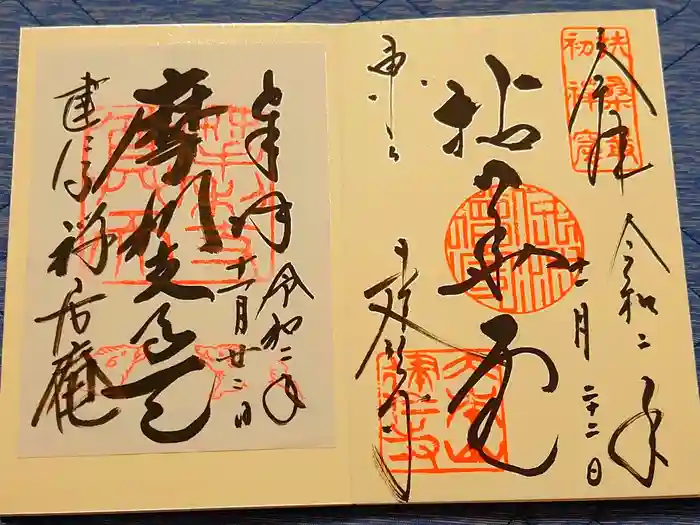 奉拝
令和二年
十一月二十二日
扶桑最
初禅窟
拈華堂
東山
建仁寺
奉拝
令和二年
十一月廿二日
摩利支尊天
建仁禅居庵